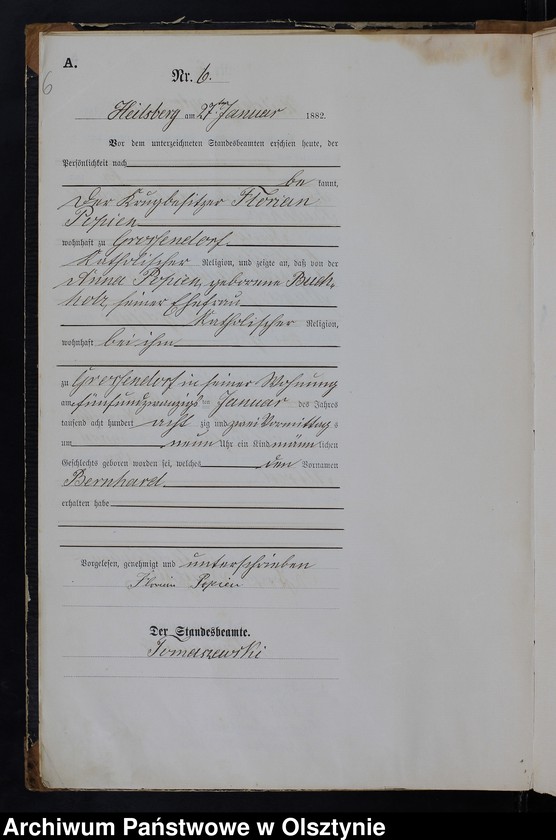 A.
6
Nr. 6.
Heilsberg am 27ten Januar 1882.
Vor dem unterzeichneten Standesbeamten erschien heute, der
Persönlichkeit nach
be kannt,
Der Krugbesitzer Florian
Popien
wohnhaft zu Grossendorf
Katholischer Religion, und zeigte an, daß von der
Anna Popien, geborenne Buch-
holz, seiner Ehefrau
Katholischer Religion,
wohnhaft bei ihm
zu Grossendorf in seiner Wohnung
am fünfundzwanzigs ten Januar des Jahres
tausend acht hundert acht zig und zwei Vormittag s
um neun Uhr ein Kind männ lichen
Geschlechts geboren worden sei, welches den Vornamen
Bernhard
erhalten habe
Vorgelesen, genehmigt und unterschrieben
Florian Popien
Der Standesbeamte.
Tomaszewski
Archiwum Państwowe w Olsztynie